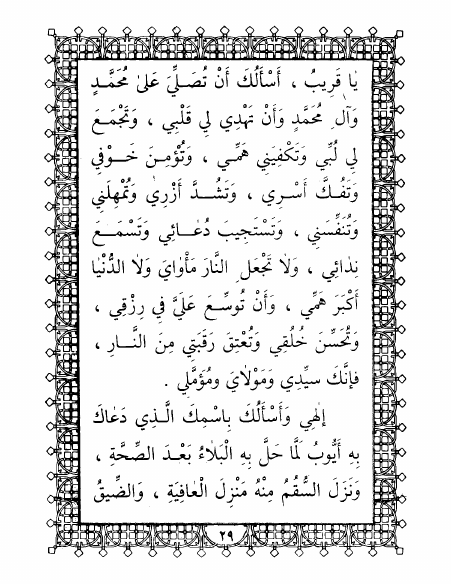 يٰا قَرِيبُ ، أَسْأَلُكَ أَنْ تُصَلِّيَ عَلىٰ مُحَمَّدٍ
وَآلِ مُحَمَّدٍ وَأَنْ تَهْدِي لِي قَلْبِي ، وَتَجْمَعَ
لِي لُبِّي وَتَكْفِيَنِي هَمِّي ، وَتُؤْمِنَ خَــوْفِي
وَتَفُــكَّ أَسْــرِي ، وَتَشُــدَّ أَزْرِي وَتُمْهِلَنِي
وَتُنَفِّسَنِي ، وَتَسْتَجِيبَ دُعٰـائِي وَتَسْمَــعَ
نِدٰائِي ، وَلاٰ تَجْعَلِ النَّارَ مَأْوٰايَ وَلاٰ الدُّنْيٰا
أَكْبَرَ هَمِّي ، وَأَنْ تُوسِّـعَ عَلَيَّ فِي رِزْقِي ،
وَتُحَسِّنَ خُلُقِي وَتُعْتِقَ رَقَبَتِي مِنَ النَّــارِ ،
فَإِنَّكَ سَيِّدِي وَمَوْلاٰيَ وَمُؤَمَّلِي .
إِلٰهِي وَأَسْأَلُكَ بِاسْمِكَ الَّـذِي دَعٰاكَ
بِهِ أَيُّوبُ لَمَّا حَلَّ بِهِ الْبَلاٰءُ بَعْـدَ الصِّحَّةِ ،
وَنَزَلَ السُّقْمُ مِنْهُ مَنْزِلَ الْعٰافِيَةِ ، وَالضِّيقُ
٢٩